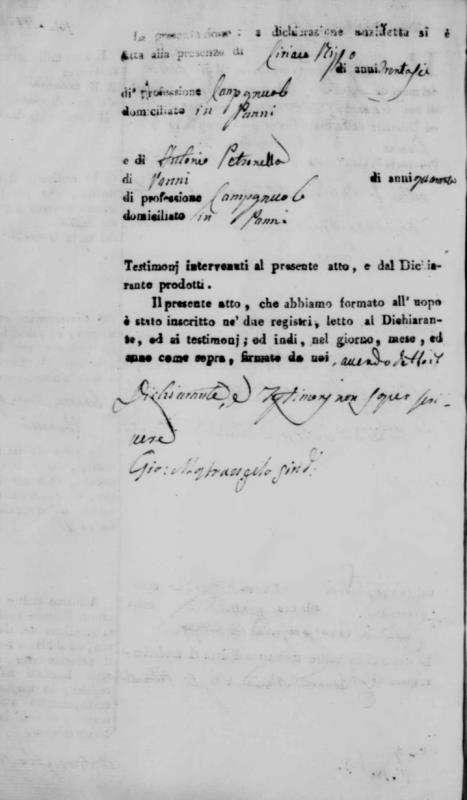 La presentazione, e dichiarazione anzidetta si è
fatta alla presenza di Ciriaco Rizzo
di anni trentasei
di professione Campagnuolo
domiciliato in Panni
e di Antonio Petronella
di Panni di anni quaranta
di professione Campagnuolo
domiciliato in Panni
Testimonj intervenuti al presente atto, e dal Dichia-
rante prodotti.
Il presente atto, che abbiamo formato all' uopo
è stato inscritto ne' due registri, letto al Dichiaran-
te, ed ai testimonj; ed indi, nel giorno, mese, ed
anno come sopra, firmato da noi, avendo detto il
Dichiarante, e Testimonj non saper scri-
vere
Gio: Mastrangelo Sind.